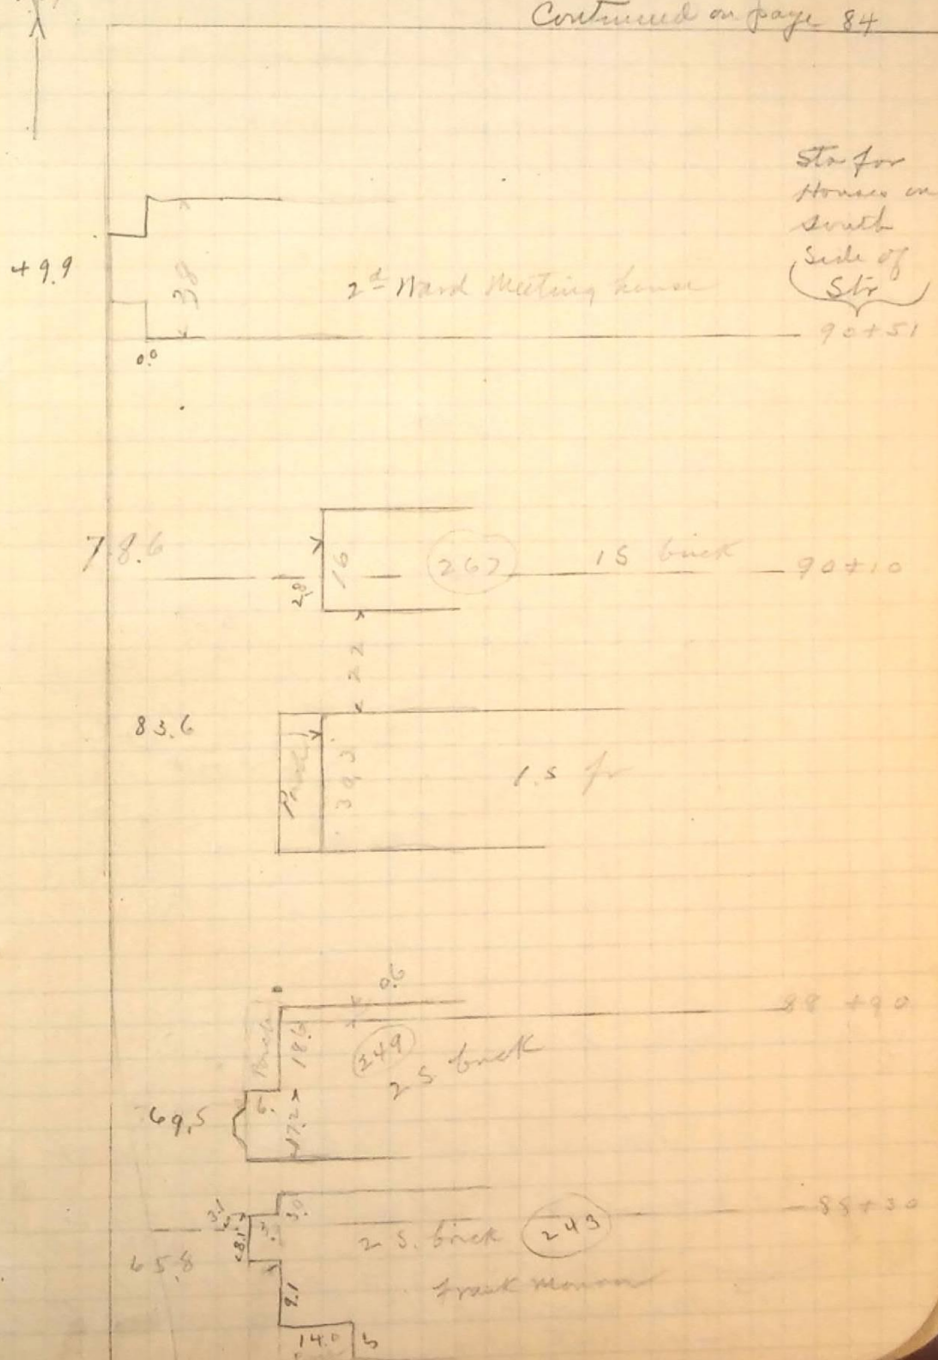 Continued on page 84
Sta for
Houses on
South
Side of
Str
49.9
38
2d Ward Meeting house
90+51
0.0
78.6
16
2.8
267
1S brick
90+10
22
83.6
Porch
39.3
1.S fr
0.6
88+90
Porch
18.6
249
2 S brick
69.5
6.
17.2
3.1
3.0
88+30
8.1
3.0
2 S. brick
243
65.8
Frank
9.1
14.0